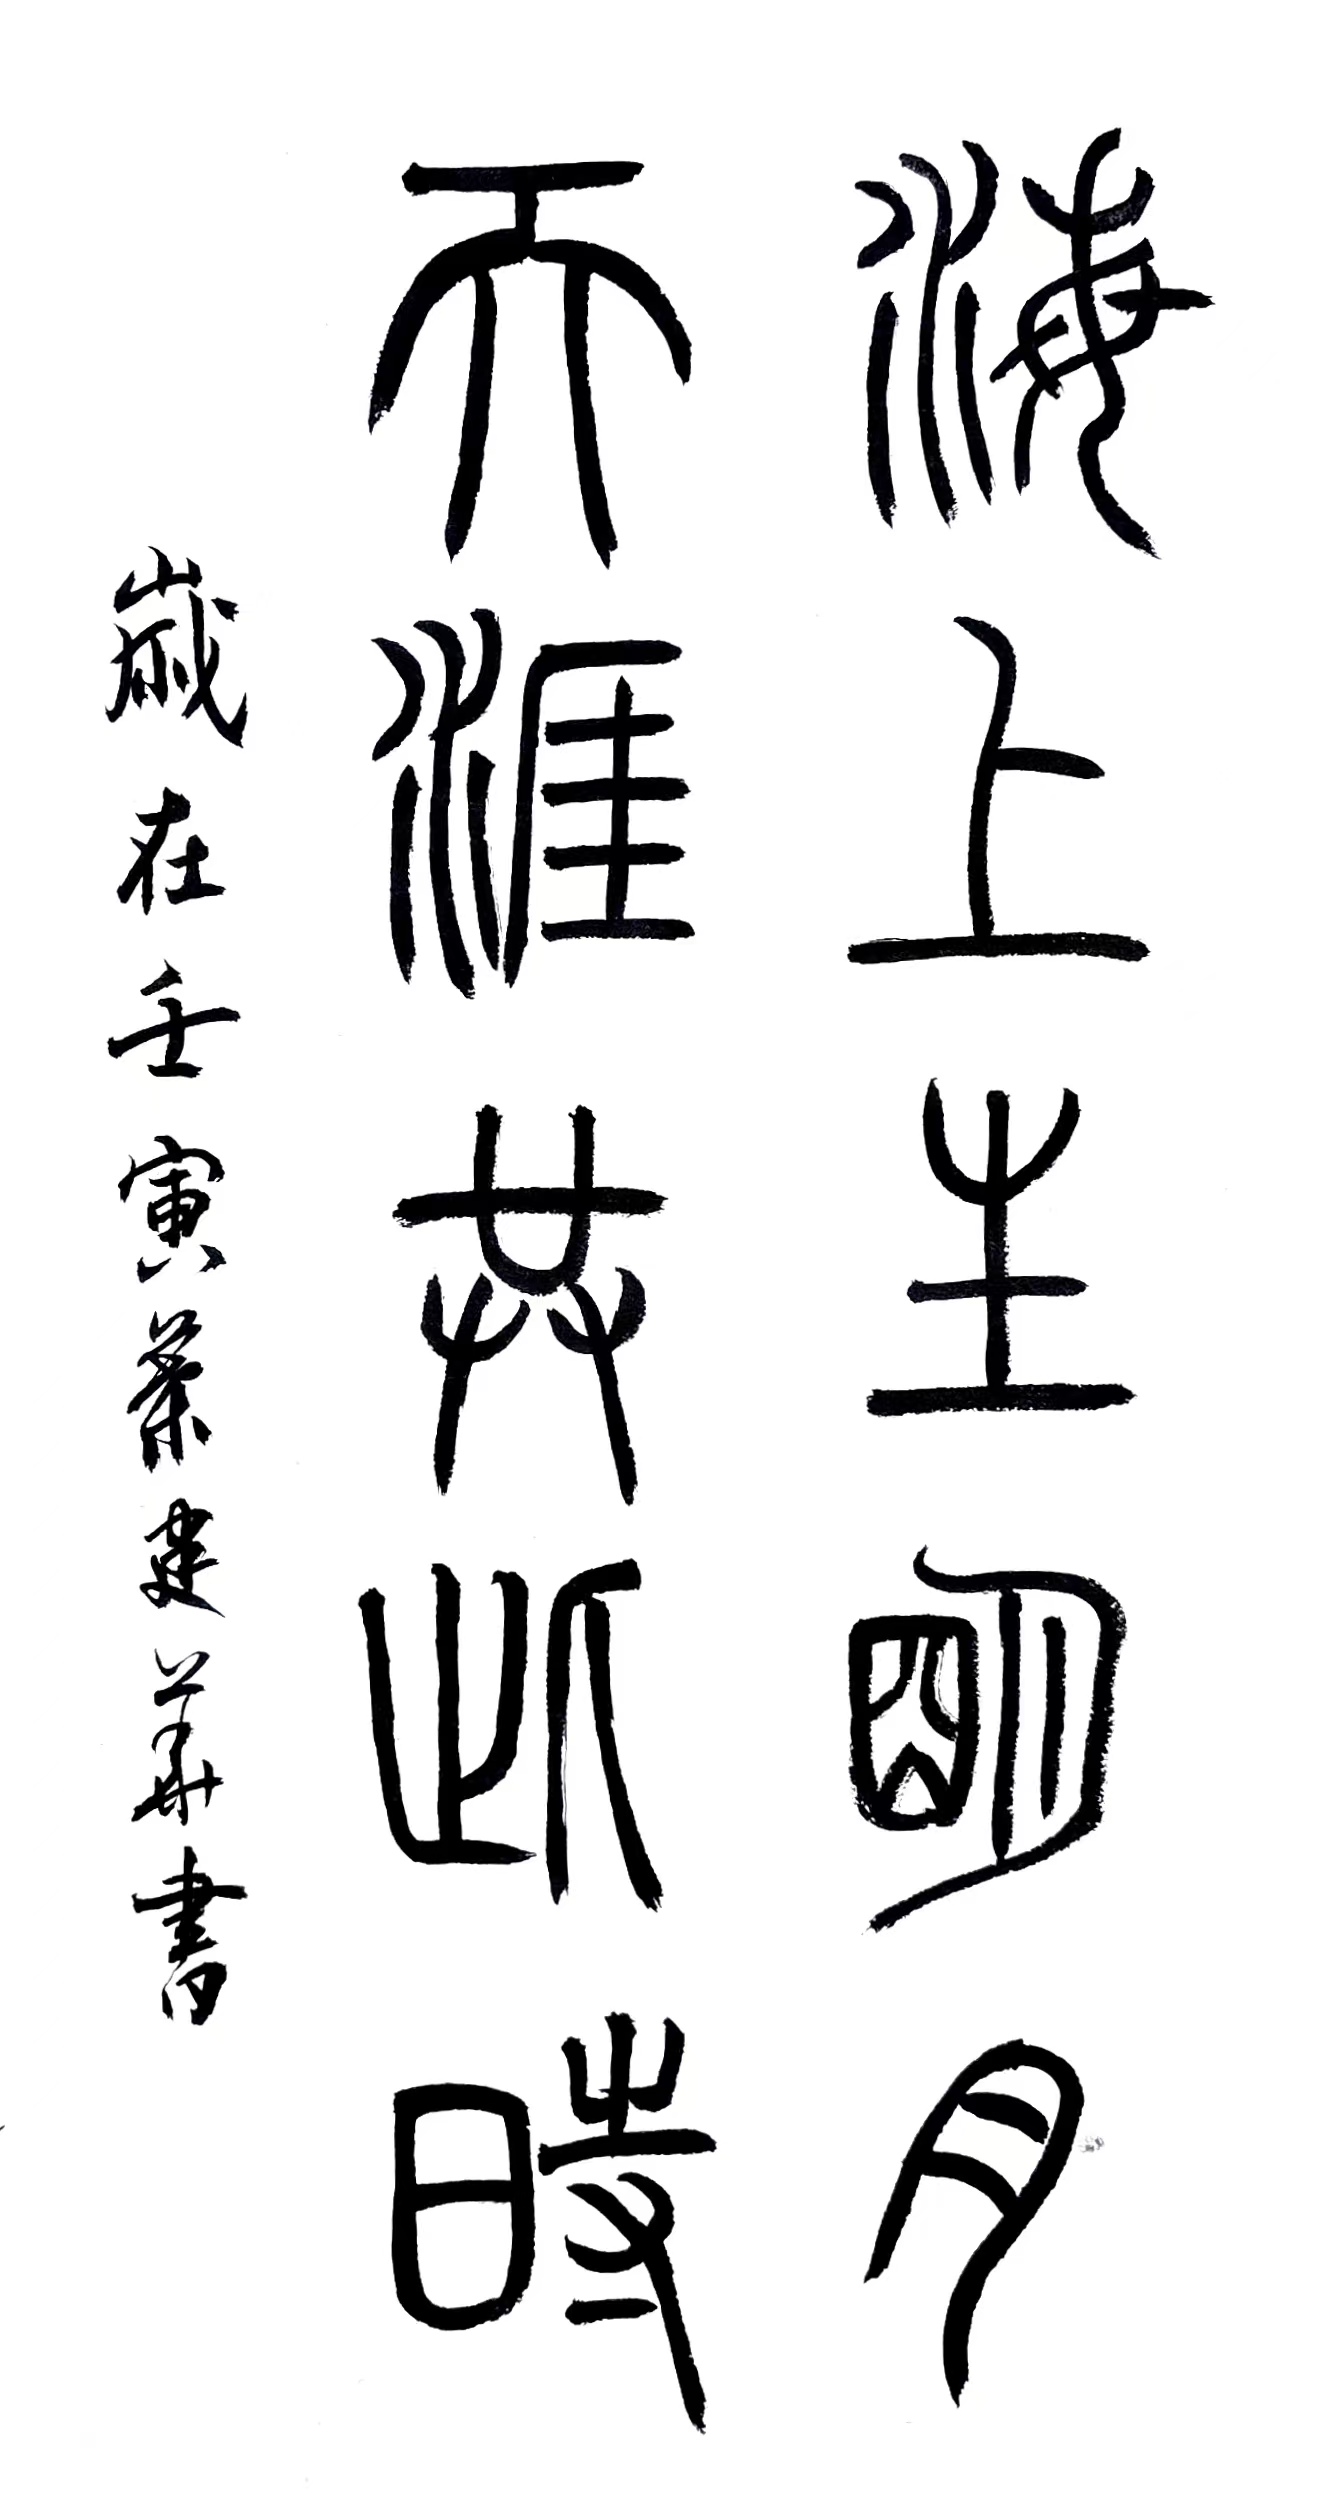 海上生朙月
天涯共此時
歲在壬寅蔡建華書